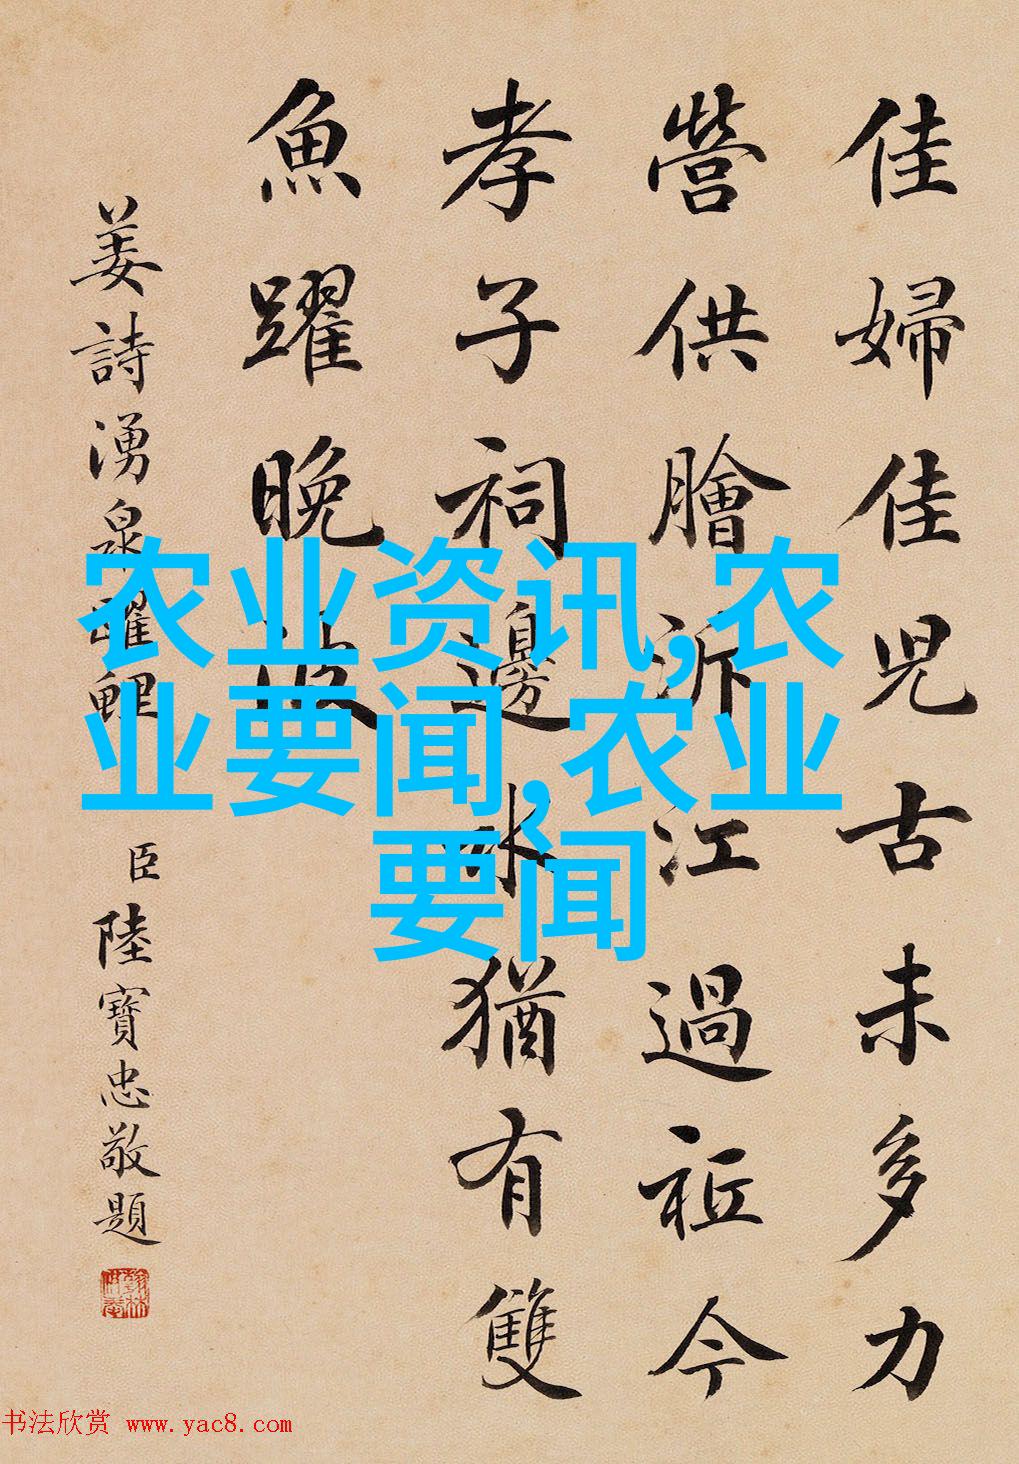 佳婦佳児古未多力
營供膾泝江過祇今
孝子祠邊水猶有雙
魚躍晚波
姜詩湧泉躍鯉
臣陸寶忠敬題
农业资讯,农
业要闻,农业
要闻
书法欣赏 www.yac8.com